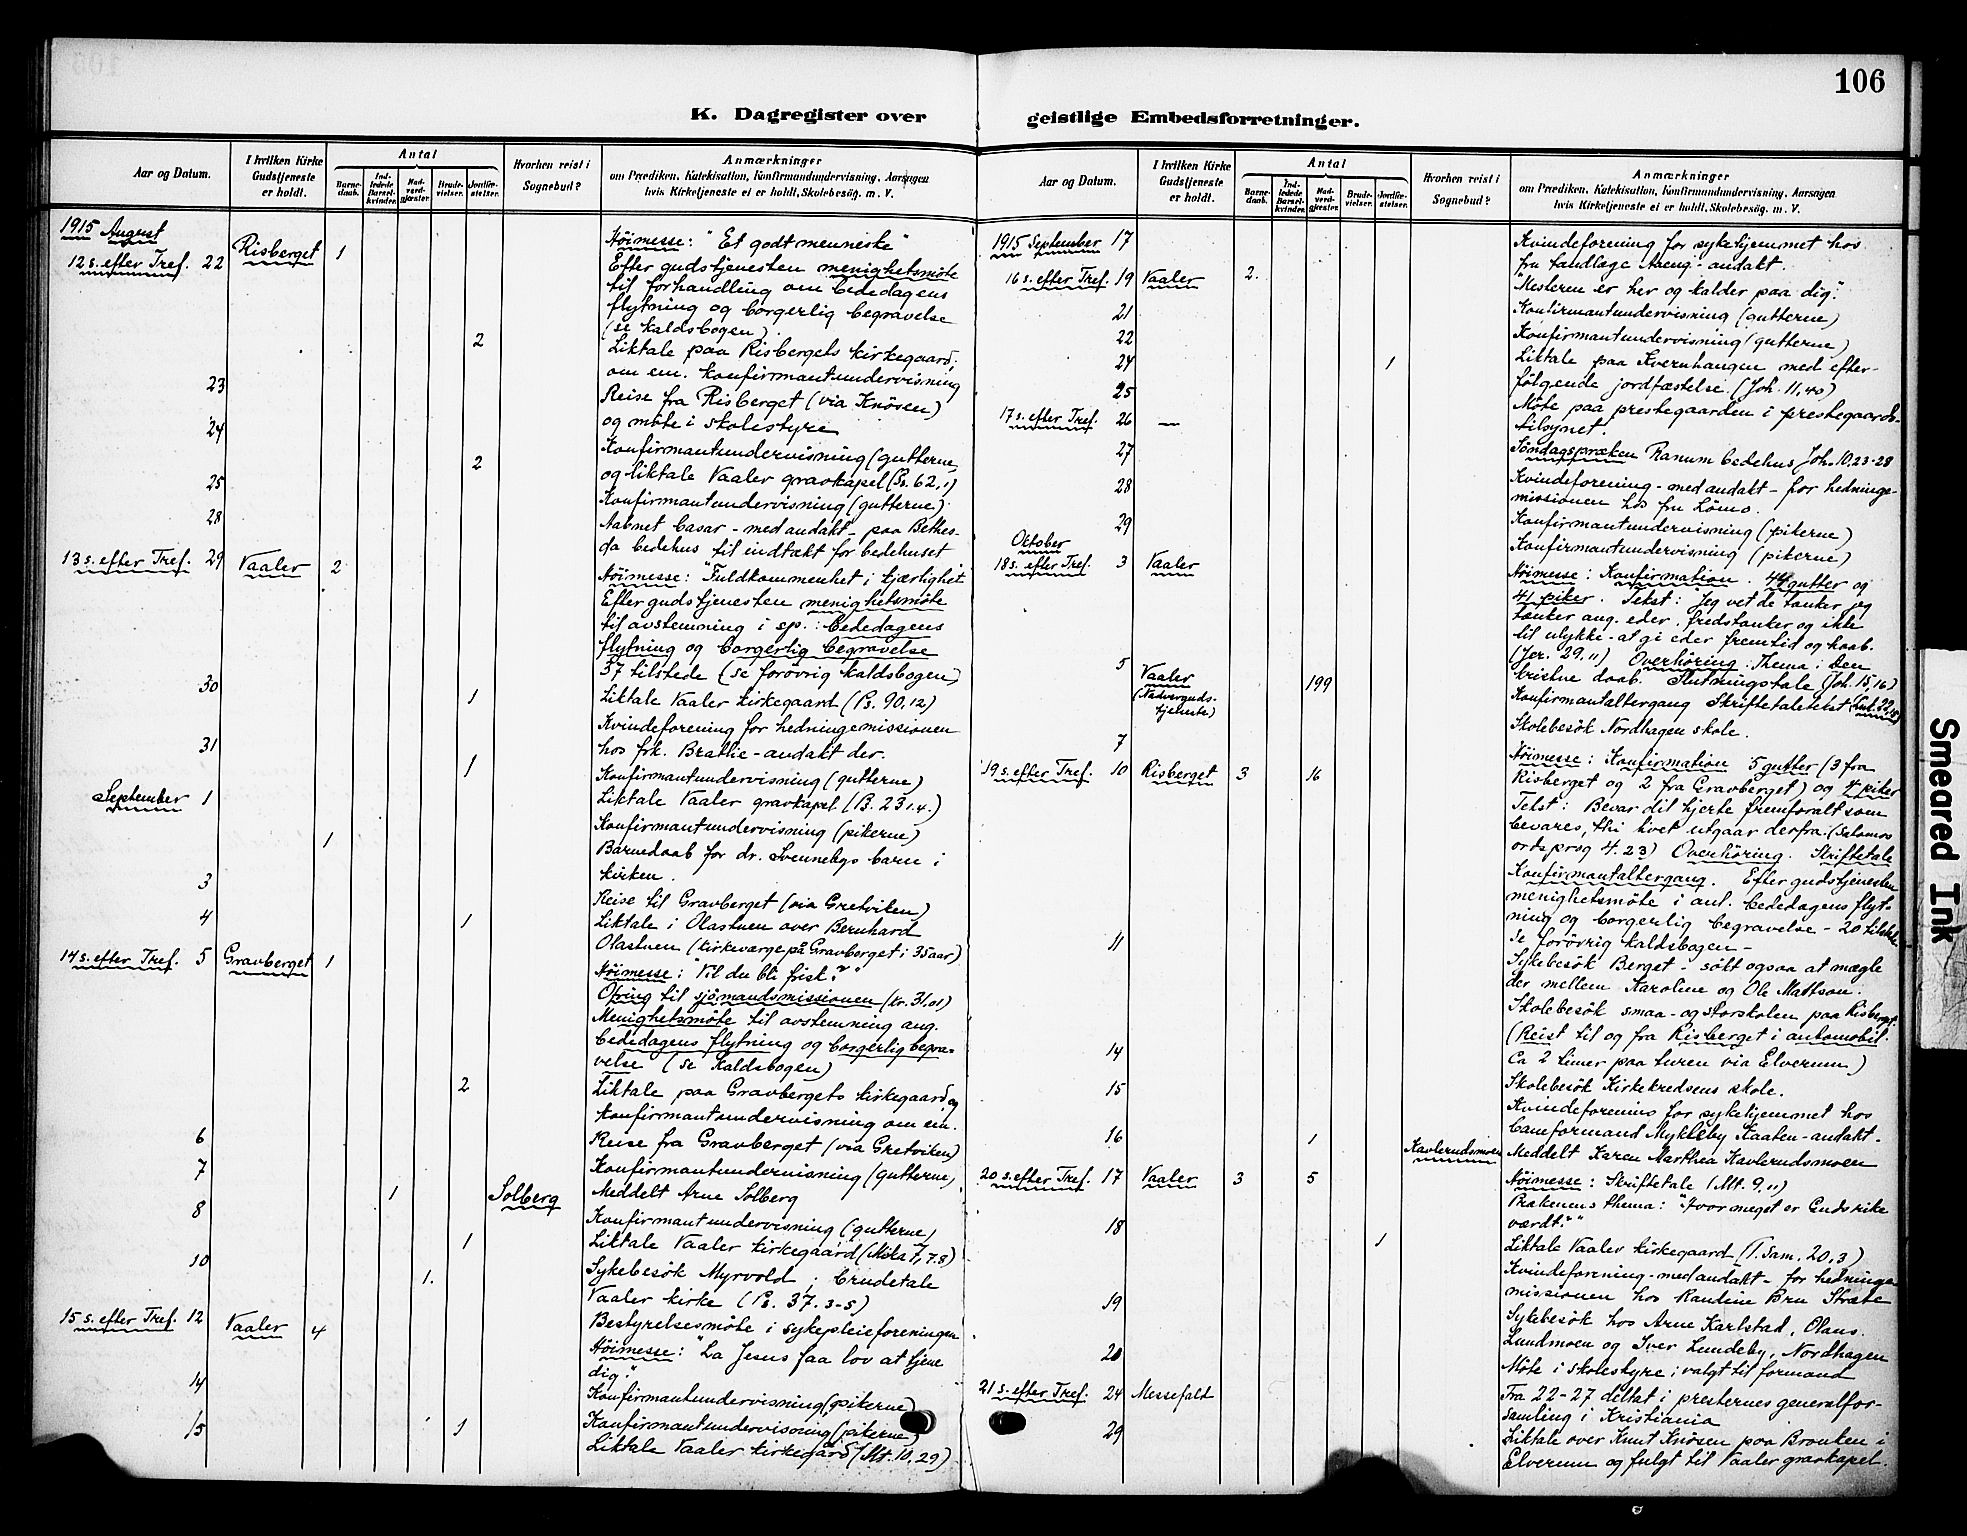 106
K. Dagregister over
geistlige Embedsforretninger.
Aar og Datum.
I hvilken Kirke Gudstjeneste er holdt.
Antal
Barnedaab.
Indledede Barselkvinder.
Nadverdgjæster.
Brudevielser.
Jordfæstelser.
Hvorhen reist i Sognebud?
Anmærkninger
om Prædiken, Katekisation, Konfirmandundervisning, Aarsagen
hvis Kirketjeneste ei er holdt, Skolebesøg. m. V.
1915 August
12 s. efter Tref. 22 Risberget 1
Höimesse: "Et godt menneske"
Efter gudstjenesten menighetsmöte
til forhandling om bededagens
flytning og borgerlig begravelse
(se kaldsbogen).
2 Liktale paa Risbergets kirkegaard;
om em. konfirmantundervisning
23 Reise fra Risberget (via Knösen)
og möte i skolestyre
24 Konfirmantundervisning (gutterne)
2 og liktale Vaaler gravkapel (Ps. 62,1)
25 Konfirmantundervisning (gutterne)
28 Aabnet basar - med andakt - paa Bethes-
da bedehus til indtækt for bedehuset
13 s. efter Tref. 29 Vaaler 2
Höimesse: "Fuldkommenhet i kjærlighet"
Efter gudstjenesten menighetsmöte
til avstemning i sp.: bededagens
flytning og borgerlig begravelse
37 tilstede (se forövrig kaldsbogen)
30 1 Liktale Vaaler kirkegaard (Ps. 90,12)
Kvindeforening for hedningemissionen
hos frk. Brathe - andakt der.
31 Konfirmantundervisning (gutterne)
1 Liktale Vaaler gravkapel (Ps. 23 1.4.)
September 1 Konfirmantundervisning (pikerne)
1 Barnedaab for dr. Svennebys barn i
kirken.
3 Reise til Gravberget (via Gretviken)
4 1 Liktale i Olastuen over Bernhard
Olastuen (kirkeværge på Gravberget i 35 aar)
14 s. efter Tref. 5 Gravberget 1
Höimesse: "Vil du bli frisk?"
Ofring til sjömandsmissionen (kr. 31,01)
Menighetsmöte til avstemning ang.
bededagens flytning og borgerlig begra-
velse (se kaldsbogen)
2 Liktale paa Gravbergets kirkegaard og
konfirmantundervisning om em.
6 Reise fra Gravberget (via Gretviken)
7 Konfirmantundervisning (gutterne)
1 Solberg Meddelt Arne Solberg
8 Konfirmantundervisning (gutterne)
1 Liktale Vaaler kirkegaard (Mika 7, 7.8)
10 Sykebesök Myrvold; brudetale
1. Vaaler kirke (Ps. 37. 3-5)
Bestyrelsesmöte i sykepleieforeningen
15 s. efter Tref. 12 Vaaler 4
Höimesse: "La Jesus faa lov at tjene
dig".
14 Konfirmantundervisning (pikerne)
15 Konfirmantundervisning (pikerne)
1 Liktale Vaaler kirkegård (Mt. 10, 29)
Aar og Datum.
I hvilken Kirke Gudstjeneste er holdt.
Antal
Barnedaab.
Indledede Barselkvinder.
Nadverdgjæster.
Brudevielser.
Jordfæstelser.
Hvorhen reist i Sognebud?
Anmærkninger
om Prædiken, Katekisation, Konfirmandundervisning, Aarsagen
hvis Kirketjeneste ei er holdt, Skolebesøg. m. V.
1915 September 17 Kvindeforening for sykehjemmet hos
fru tandlæge Aaeng - andakt.
16 s. efter Tref. 19 Vaaler 2.
"Mesteren er her og kalder paa dig".
21 Konfirmantundervisning (gutterne)
22 Konfirmantundervisning (gutterne)
24 1 Liktale paa Kvernhaugen med efter-
fölgende jordfæstelse. (Joh. 11,40)
25 Möte paa prestegaarden i prestegaards-
tilsynet.
17 s. efter Tref. 26 —
Söndagspræken Ranum bedehus Joh. 10, 23-28
27 Kvindeforening - med andakt - for hedninge-
missionen hos fru Lömo.
28 Konfirmantundervisning (pikerne)
29 Konfirmantundervisning (pikerne)
Oktober
18 s. efter Tref. 3 Vaaler
Höimesse: Konfirmation. 44 gutter og
41 piker. Tekst: "Jeg vet de tanker jeg
tænker ang. eder, fredstanker og ikke
til ulykke - at gi eder fremtid og haab.
(Jer. 29,11) Overhöring. Thema: Den
kristne daab. Slutningstale (Joh. 15,16)
5 Vaaler (Nadvergudstjeneste) 199
Konfirmantaltergang Skriftetaletekst
7 Skolebesök Nordhagen skole.
19 s. efter Tref. 10 Risberget 3 16
Höimesse: Konfirmation 5 gutter (3 fra
Risberget og 2 fra Gravberget) og 4 piker
Tekst: Bevar dit hjerte fremforalt som
bevares, thi livet utgaar derfra. (Salomos
ordsprog 4. 23) Overhöring. Skriftetale
Konfirmantaltergang. Efter gudstjenesten
menighetsmöte i ant. bededagens flyt-
ning og borgerlig begravelse - 20 tilstede
Se forövrig kaldsbogen -
11 Sykebesök Berget - sökt ogsaa at mægle
der mellem Karoline og Ole Mattson.
Skolebesök smaa- og storskolen paa Risberget.
(Reist til og fra Risberget i automobil.
Ca 2 timer paa turen via Elverum)
14 Skolebesök Kirkekredsens skole.
15 Kvindeforening for sykehjemmet hos
baneformand Mykleby Kaaten - andakt -
16 1 Kavlerudsmoen Meddelt Karen Marthea Kavlerudsmoen
20 s. efter Tref. 17 Vaaler 3 5
Höimesse: Skriftetale (Mt. 9,11)
Prækenens thema: "Hvor meget er Guds rike
værdt?"
18 1 Liktale Vaaler kirkegaard (1. Sam. 20,3)
Kvindeforening - med andakt - for hedninge-
missionen hos Pauline Bru Stræte
19 Sykebesök hos Arne Karlstad, Olaus
Lundmoen og Iver Lundeby, Nordhagen
20 Möte i skolestyre; valgt til formand
21 s. efter Tref. 24 Messefald
Fra 22-27 deltat i presternes generalfor-
samling i Kristiania
29 Liktale over Knut Knösen paa Brauken i
Elverum og fulgt til Vaaler gravkapel.
Smeared Ink